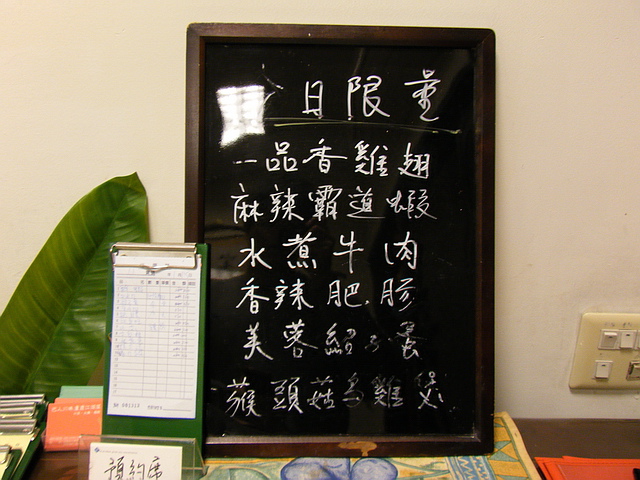 今日限量
一品香雞翅
麻辣霸道蝦
水煮牛肉
香辣肥腸
芙蓉
猴頭菇烏雞煲
預約席